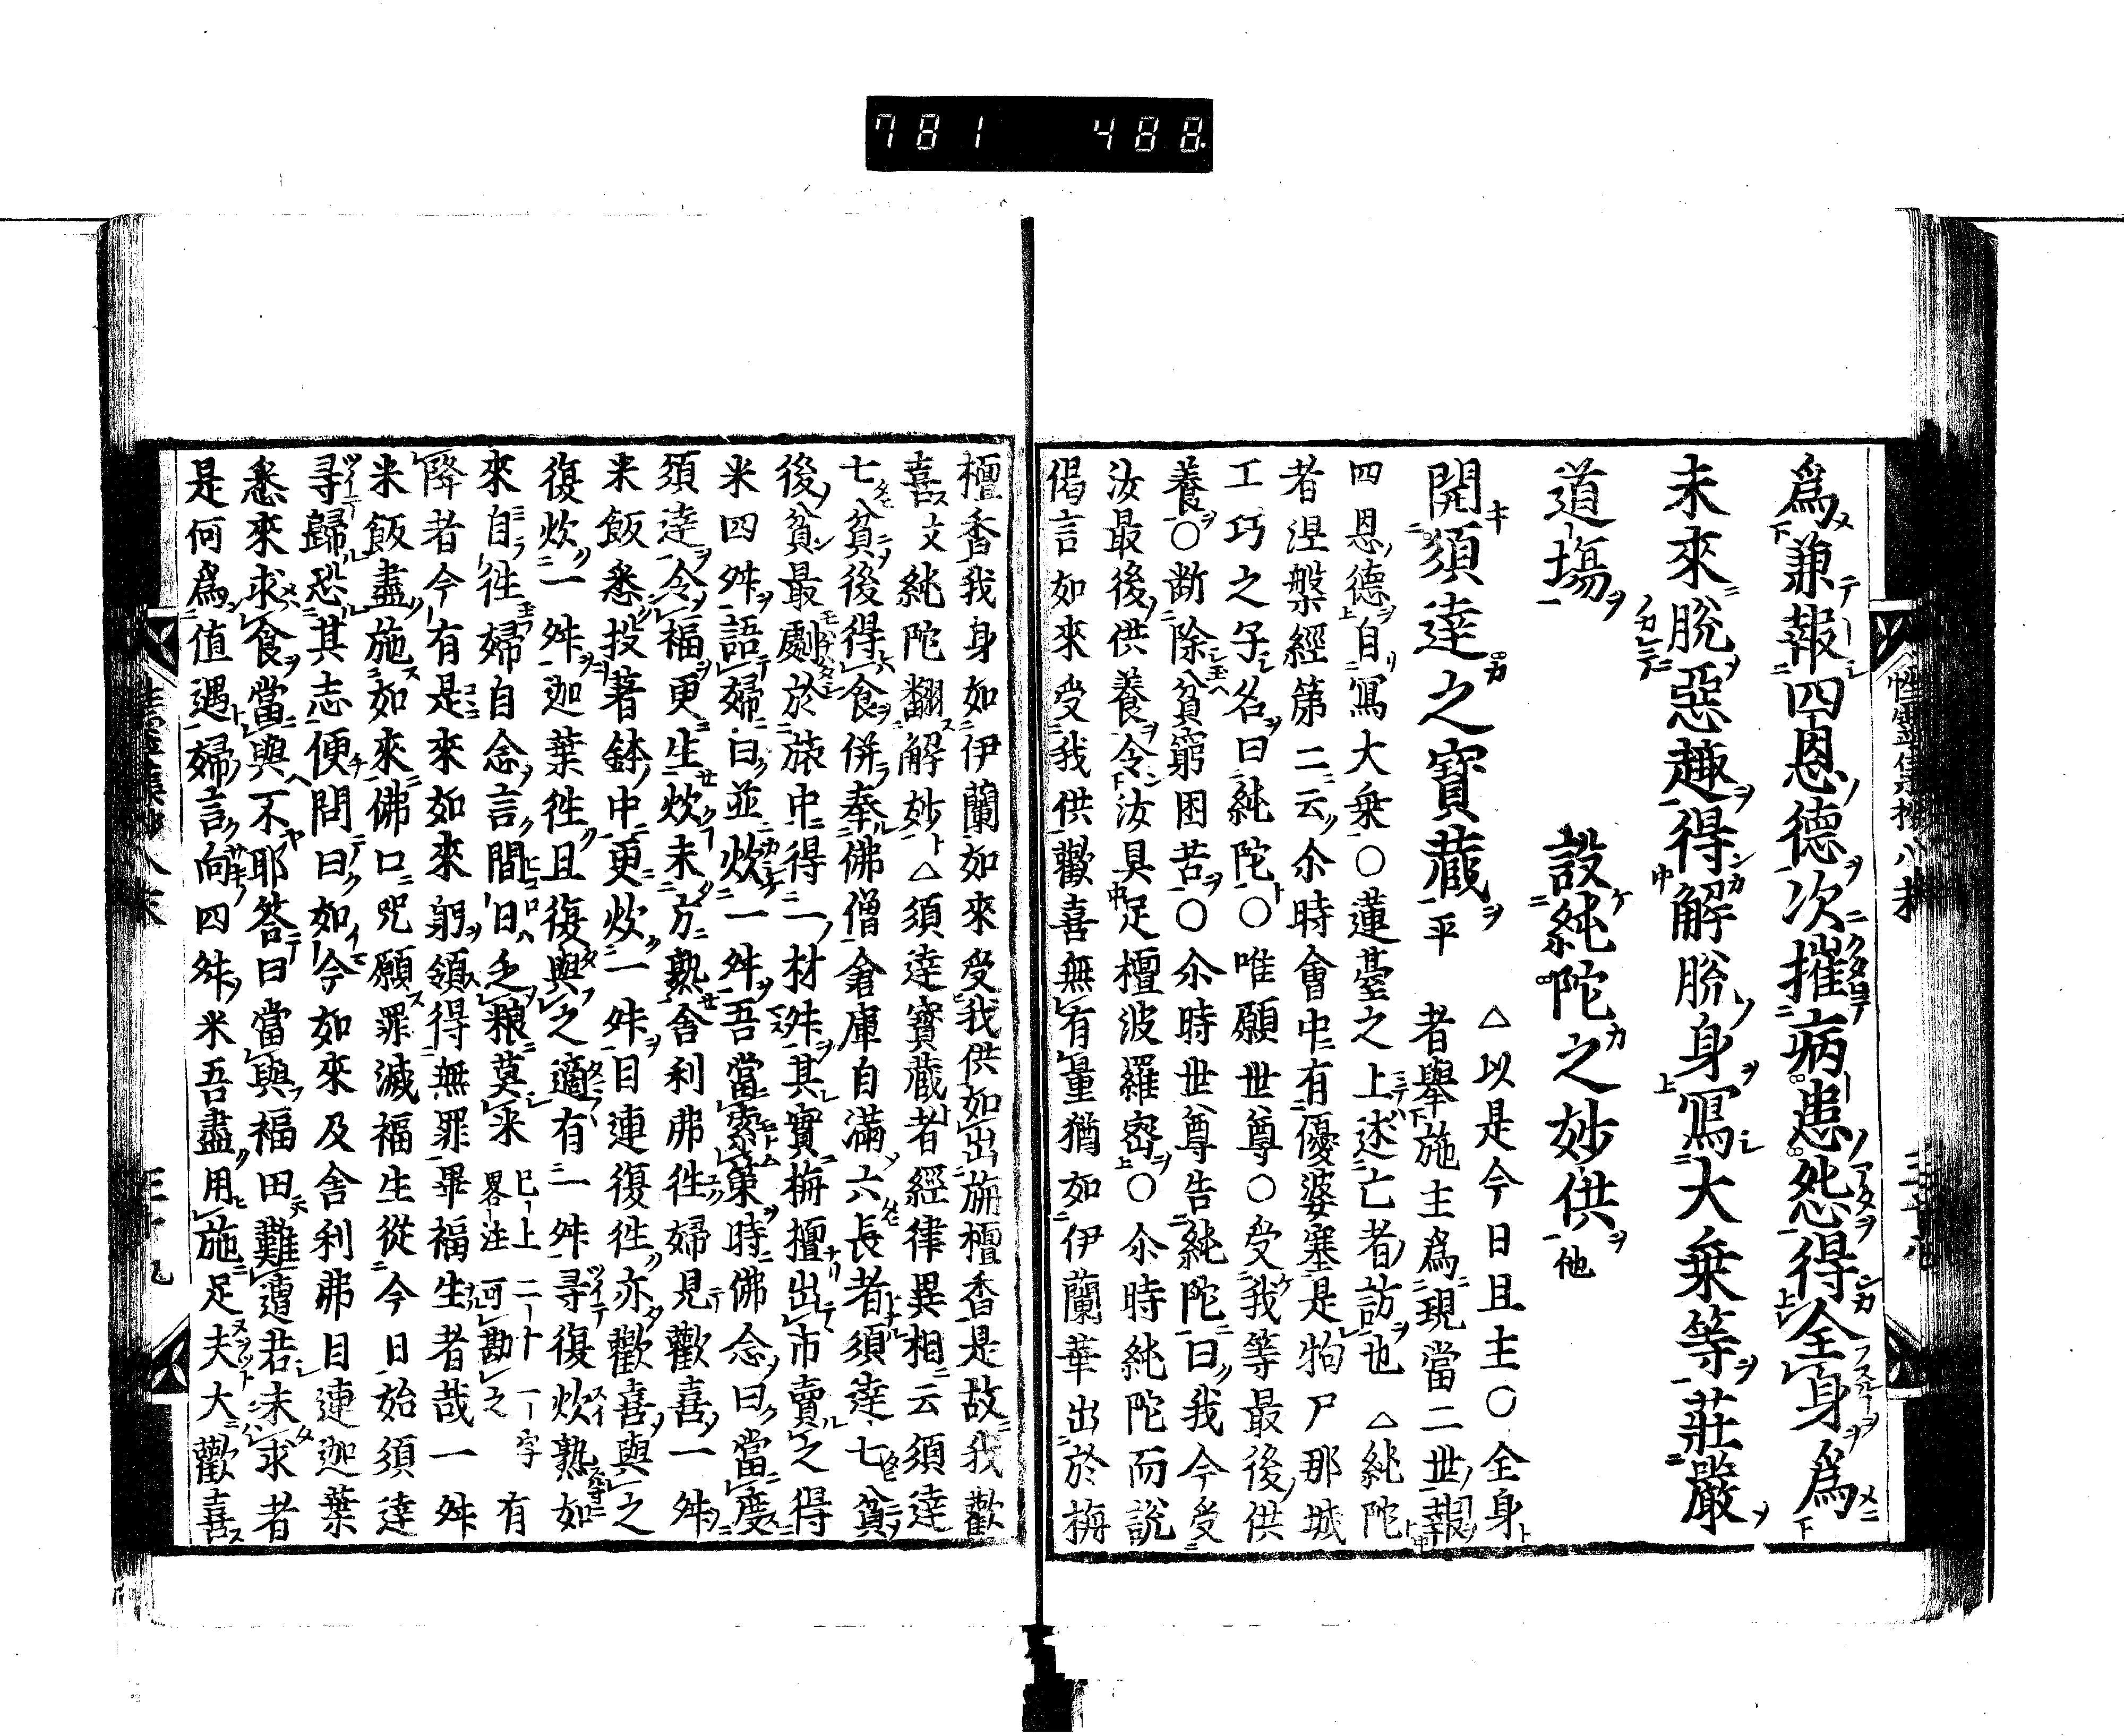 781 488
為兼報四恩德次摧病患怨得全身為
未來脫惡趣得解脫身寫大乗等莊嚴
道場 設純陀之妙供他
開須達之寶蔵平 △以是今日且主○全身
者舉施主為現當二世報
四恩德自寫大乗○蓮臺之上述亡者訪也 △純陀
者涅槃經第二云尒時會中有優婆塞是拘尸那城
工巧之子名曰純陀○唯願世尊○受我等最後供
養○断除貧窮困苦○尒時世尊告純陀曰我今受
汝最後供養令汝具足檀波羅密○尒時純陀而説
偈言如來受我供歡喜無有量猶如伊蘭華出於栴
檀香我身如伊蘭如來受我供如出栴檀香是故我歡
喜文純陀翻解妙 △須達寶蔵者經律異相云須達
七貧後得食併奉佛僧倉庫自滿六長者須達七貧
後貧最劇於壌中得一材舛其實栴檀出市賣之得
米四舛語婦曰並炊一舛吾當索菓時佛念曰當度
須達令福更生炊未方熟舎利弗徃婦見歡喜一舛
米飯悉投著鉢中更炊一舛目連復徃亦歡喜與之
復炊一舛迦葉徃且復與之適有一舛尋復炊熟如
來自徃婦自念言間日乏粮莫來 巳上二十一字畧注可勘之 有
降者今有是來如來躬領得無罪畢福生者哉一舛
米飯盡施如來佛口咒願罪滅福生從今日始須達
寻歸恐其志便問曰如今如來及舎利弗目連迦葉
悉來求食當與不耶答曰當與福田難遭若未求者
是何為值遇婦言向四舛米吾盡用施足夫大歡喜